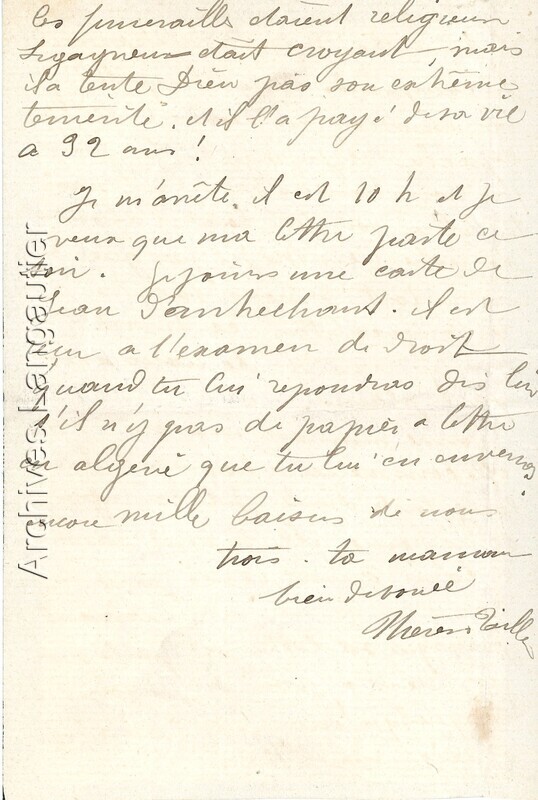 les funeraille etaient religieux
Legagneux était croyant, mais
il a tenté Dieu par son extrême
témérité. et il l'a payé de sa vie
a 32 ans !
Je m'arrête. il est 10 h et je
veux que ma lettre parte ce
soir. je joins une carte de
Jean d'anthelhant. il est
reçu a l'examen de droit
quand tu lui repondras dis lui
s'il n'y pas de papier a lettre
en algerie que tu lui en enverras.
encore mille baisers de nous
trois. ta maman
bien devouée
Therèse
Archives Langautier